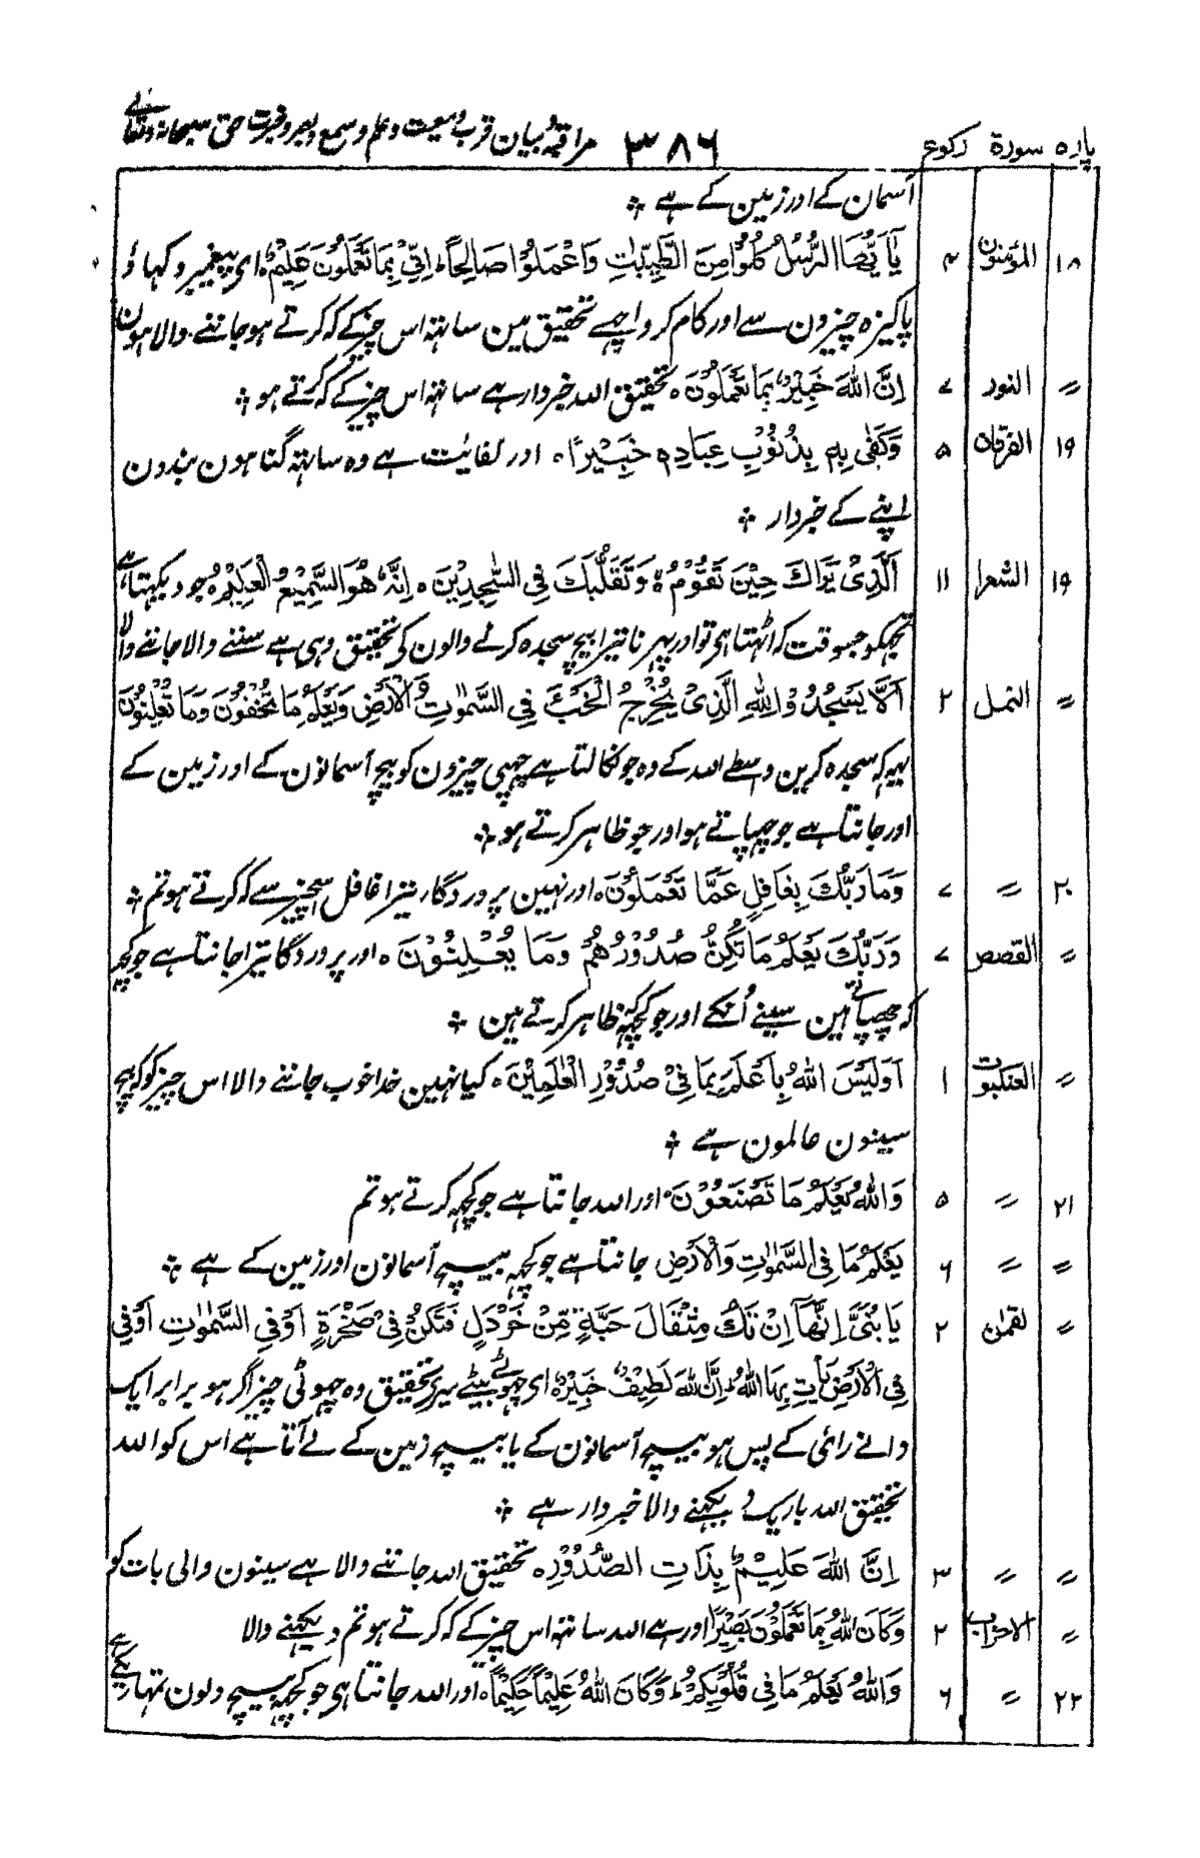 پارہ سورۃ رکوع ۳۸۶ مراقبۂ بیان قرب و معیت و علم و سمع و بصر و خبرت حق سبحانہ و تعالے
آسمان کے اور زمین کے ہے ؞
۱۸ المؤمنون ۴ يٰٓاَيُّهَا الرُّسُلُ كُلُوْا مِنَ الطَّيِّبٰتِ وَاعْمَلُوْا صَالِحًا ؕ اِنِّيْ بِمَا تَعْمَلُوْنَ عَلِيْمٌ ؕ ای پیغمبرو کہاؤ
پاکیزہ چیزون سے اور کام کرو اچھے تحقیق مین ساتہہ اس چیز کے کہ کرتے ہو جاننے والا ہون
〃 النور ۷ اِنَّ اللّٰهَ خَبِيْرٌۢ بِمَا تَعْمَلُوْنَ ہ تحقیق اللہ خبردار ہے ساتہہ اس چیز کے کہ کرتے ہو ؞
۱۹ الفرقان ۵ وَكَفٰى بِهٖ بِذُنُوْبِ عِبَادِهٖ خَبِيْرًا ہ اور کفایت ہے وہ ساتہہ گناہون بندون
اپنے کے خبردار ؞
۱۹ الشعرا ۱۱ اَلَّذِيْ يَرَاكَ حِيْنَ تَقُوْمُ ۙ وَتَقَلُّبَكَ فِي السّٰجِدِيْنَ ہ اِنَّهٗ هُوَ السَّمِيْعُ الْعَلِيْمُ ہ جو دیکہتا ہے
تجہکو جسوقت کہ اٹہتا ہی تو اور پہرنا تیرا بیچ سجدہ کرنے والون کی تحقیق وہی ہے سننے والا جاننے والا
〃 النمل ۲ اَلَّا يَسْجُدُوْا لِلّٰهِ الَّذِيْ يُخْرِجُ الْخَبْءَ فِي السَّمٰوٰتِ وَالْاَرْضِ وَيَعْلَمُ مَا تُخْفُوْنَ وَمَا تُعْلِنُوْنَ
یہہ کہ سجدہ کرین واسطے اللہ کے وہ جو نکالتا ہے چہپی چیزون کو بیچ آسمانون کے اور زمین کے
اور جانتا ہے جو چہپاتے ہو اور جو ظاہر کرتے ہو ؞
۲۰ 〃 ۷ وَمَا رَبُّكَ بِغَافِلٍ عَمَّا تَعْمَلُوْنَ ہ اور نہین پروردگار تیرا غافل اسچیز سے کہ کرتے ہو تم ؞
〃 القصص ۷ وَرَبُّكَ يَعْلَمُ مَا تُكِنُّ صُدُوْرُهُمْ وَمَا يُعْلِنُوْنَ ہ اور پروردگا تیرا جانتا ہے جو کچہہ
کہ چھپاتے ہین سینے اُنکے اور جو کچہہ ظاہر کرتے ہین ؞
〃 العنکبوت ۱ اَوَلَيْسَ اللّٰهُ بِاَعْلَمَ بِمَا فِيْ صُدُوْرِ الْعٰلَمِيْنَ ہ کیا نہین خدا خوب جاننے والا اس چیز کو کہ بیچ
سینون عالمون ہے ؞
۲۱ 〃 ۵ وَاللّٰهُ يَعْلَمُ مَا تَصْنَعُوْنَ ہ اور اللہ جانتا ہے جو کچہہ کرتے ہو تم
〃 〃 ۶ يَعْلَمُ مَا فِي السَّمٰوٰتِ وَالْاَرْضِ جانتا ہے جو کچہہ بیچ آسمانون اور زمین کے ہے ؞
〃 لقمٰن ۲ يَا بُنَيَّ اِنَّهَآ اِنْ تَكُ مِثْقَالَ حَبَّةٍ مِّنْ خَرْدَلٍ فَتَكُنْ فِيْ صَخْرَةٍ اَوْ فِي السَّمٰوٰتِ اَوْ فِي
فِي الْاَرْضِ يَاْتِ بِهَا اللّٰهُ ؕ اِنَّ اللّٰهَ لَطِيْفٌ خَبِيْرٌ ہ ای چہوٹے بیٹے میرے تحقیق وہ چہوٹی چیز اگر ہو برابر ایک
دانے رائی کے پس ہو بیچ آسمانون کے یا بیچ زمین کے لے آتا ہے اس کو اللہ
تحقیق اللہ باریک دیکہنے والا خبردار ہے ؞
〃 〃 ۳ اِنَّ اللّٰهَ عَلِيْمٌۢ بِذَاتِ الصُّدُوْرِ ہ تحقیق اللہ جاننے والا ہے سینون والی بات کو
〃 الاحزاب ۲ وَكَانَ اللّٰهُ بِمَا تَعْمَلُوْنَ بَصِيْرًا اور ہے اللہ ساتہہ اس چیز کے کہ کرتے ہو تم دیکہنے والا
۲۲ 〃 ۶ وَاللّٰهُ يَعْلَمُ مَا فِيْ قُلُوْبِكُمْ ؕ وَكَانَ اللّٰهُ عَلِيْمًا حَكِيْمًا ہ اور اللہ جانتا ہی جو کچہہ بیچ دلون تمہارے کے ہے